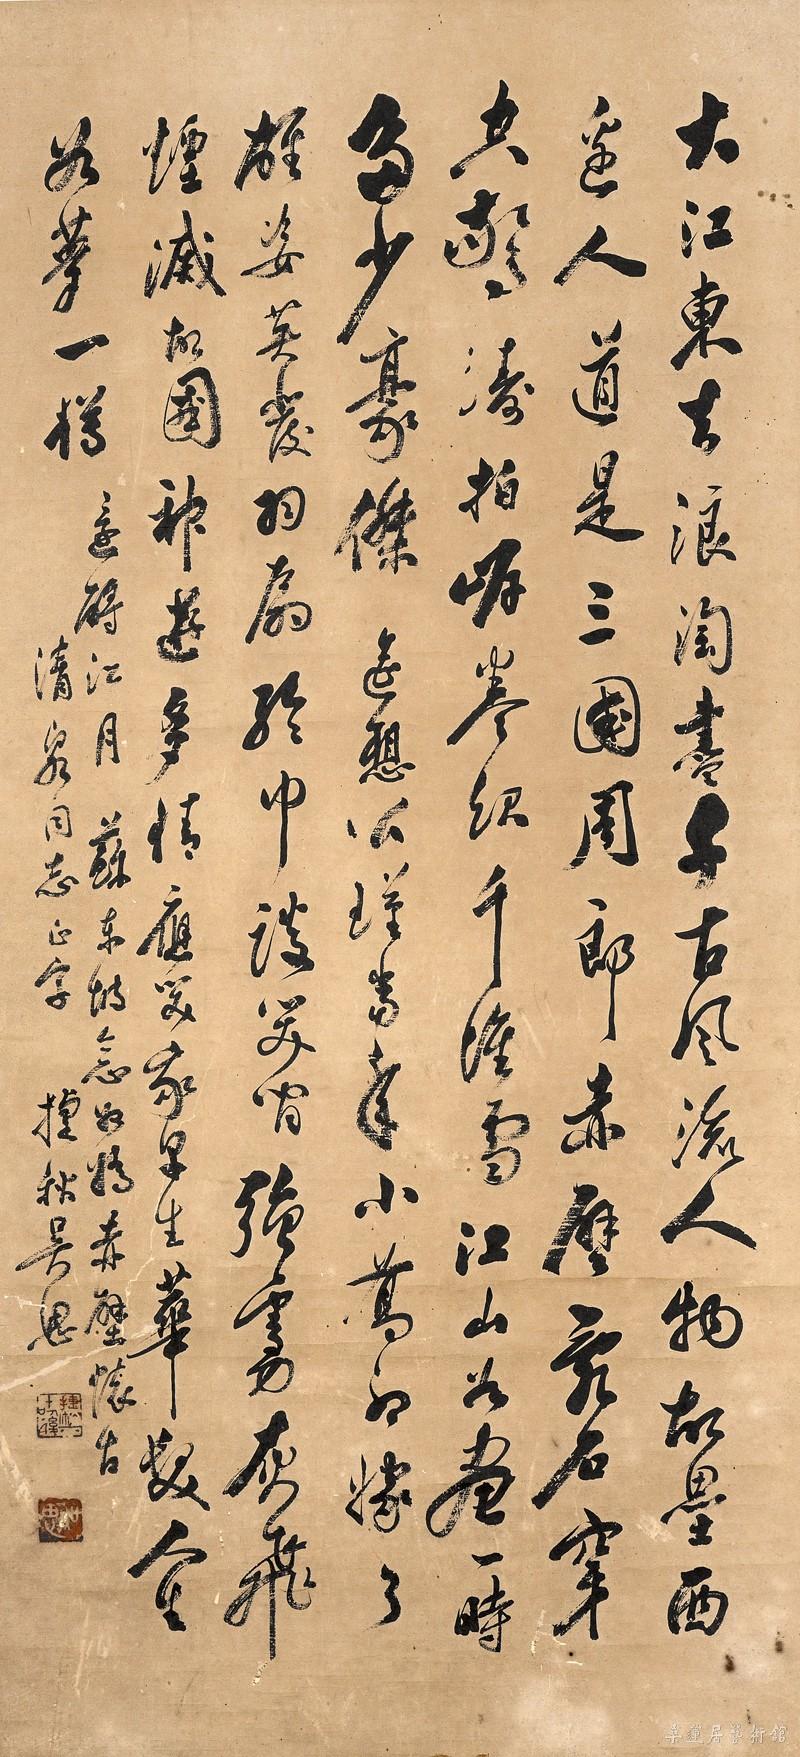 大江東去浪淘盡千古風流人物故壘西
邊人道是三國周郎赤壁亂石穿
空驚濤拍岸卷起千堆雪江山如畫一時
多少豪傑 遙想公瑾當年小喬初嫁了
雄姿英發羽扇綸巾談笑間強虜灰飛
煙滅故國神遊多情應笑我早生華髮人生
如夢一樽
還酹江月 蘇東坡念奴嬌赤壁懷古
清泉同志正字 捷秋吳思
華蓮居藝術館